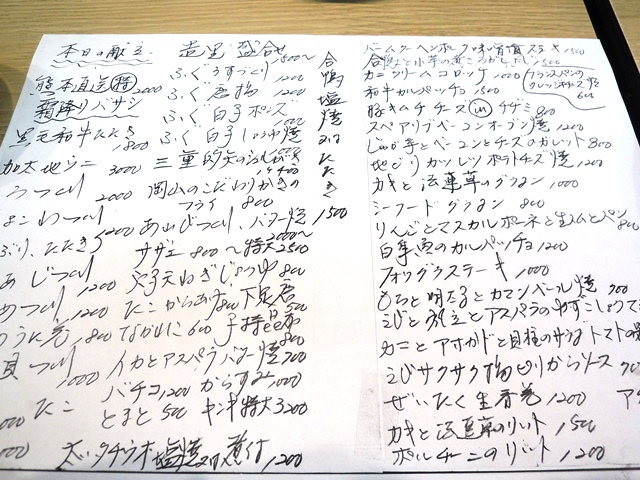 本日の献立
造里 盛合せ 1500～
熊本直送 特
霜降りバサシ 2000
黒毛和牛たたき 1800
加太地ダコ 3000
2000
よこわつくり 1200
ぶり、たたき
あじつくり
1200
うに 1800
貝つくり 1000
たこ
ふぐうすづくり 1200
ふぐ唐揚 1200
ふぐ白子ポンズ
ふぐ白子しょうゆ焼
三重的矢の 1400
岡山のこだわりかきの
フライ 800
あわびつくり、バター焼
2000～
サザエ 800～特大2500
穴子天ねぎじょうゆ 800
たこからあげ 800 下足唐 500
ながいも 600 子持昆布 800
イカとアスパラバター焼 700
バチコ 1200 からすみ 1000
とまと 500 キンキ特大 3200
太刀タチウオ塩焼 煮付 1200
合鴨塩焼 たたき 1500
バームクーヘンポーク味噌漬ステーキ 1500
合鴨と小芋の 1500
カニクリームコロッケ 1000
フランスパンの
クレソンチーズ焼
600
和牛カルパッチョ 1500
豚キムチチーズ in チヂミ 800
スペアリブベーコンオーブン焼 1200
じゃが芋とベーコンとチーズのガレット 800
地どりカツレツポテトチーズ焼 1200
カキと法蓮草のグラタン 1000
シーフードグラタン 800
りんごとマスカルポーネと生ハムとパン 800
白身魚のカルパッチョ 1200
フォアグラステーキ 1000
もちと明太子とカマンベール焼 700
えびと帆立とアスパラのゆずこしょう
カニとアボカドと目板のサラダ トマトの
えびサクサク揚ピリからソース
ぜいたく生春巻 1200
カキと法蓮草のリゾット 1500
ポルチーニのリゾット 1200